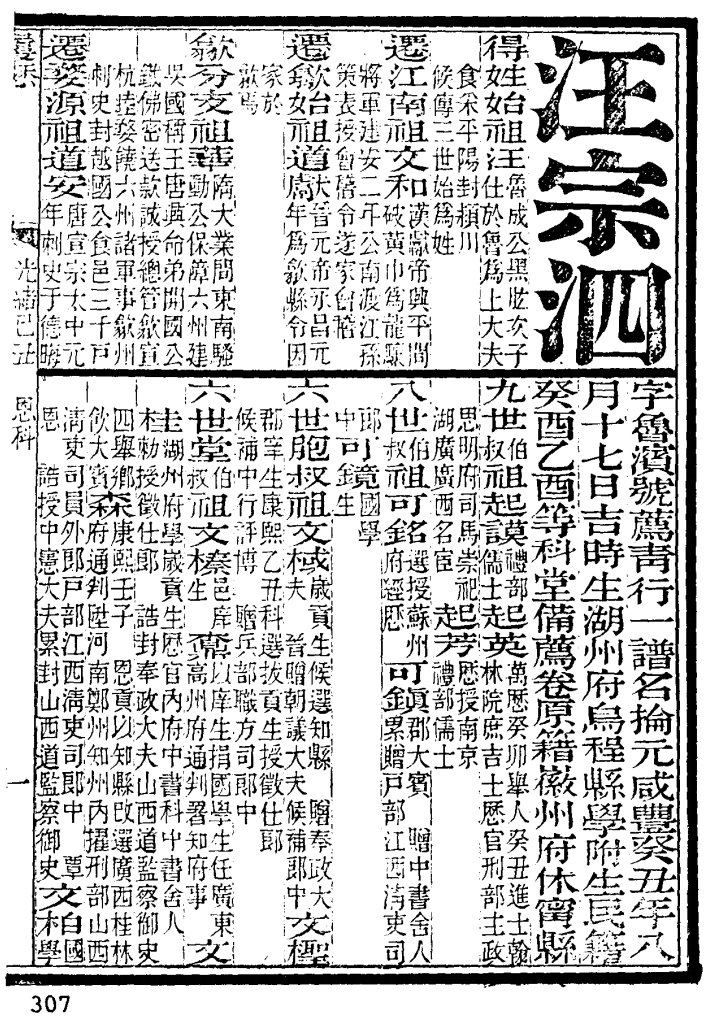 汪宗泗
得姓始祖汪魯成公黑肱次子
仕於魯爲上大夫
食采平陽封頴川
候傳三世始爲姓
遷江南祖文和漢獻帝興平間
破黃巾爲龍驤
將軍建安二年公南渡江孫
策表授會稽令遂家會稽
遷歙始祖道獻大晉元帝永昌元
年爲歙縣令因
家於
歙焉
歙分支祖華隋大業間東南騷
動公保障六州建
吳國稱王唐興命弟開國公
鐵佛密送款誠授總管歙宣
杭睦婺饒六州諸軍事歙州
刺史封越國公食邑三千戶
遷婺源祖道安唐宣宗大中元
年刺史子德晦
字魯濱號薦青行一譜名掄元咸豐癸丑年八
月十七日吉時生湖州府烏程縣學附生民籍
癸酉乙酉等科堂備薦卷原籍徽州府休甯縣
九世伯叔祖起謨禮部儒士起英萬歷癸卯舉人癸丑進士翰
林院庶吉士歷官刑部主政
思明府司馬崇祀
湖廣廣西名宦起芳歷授南京
禮部儒士
八世伯叔祖可銘選授蘇州府經歷可鎮郡大賓 贈中書舍人
累贈戶部江西清吏司
郎中可鏡國學生
六世胞叔祖文棫歲貢生候選知縣 贈奉政大
夫 晉贈朝議大夫候補郎中文檉
郡庠生康熙乙丑科選拔貢生授徵仕郎
候補中行評博 贈兵部職方司郎中
六世堂伯叔祖文榛邑庠生以庠生捐國學生任廣東
高州府通判署知府事文
圭湖州府學歲貢生歷官內府中書科中書舍人
敕授徵仕郎 誥封奉政大夫山西道監察御史
四舉鄉飲大賓森康熙壬子 恩貢以知縣改選廣西桂林
府通判陞河南鄭州知州內擢刑部山西
清吏司員外郎戶部江西清吏司郎中 覃
恩 誥授中憲大夫累封山西道監察御史文柏國
學
光緒己丑 恩科
一
307